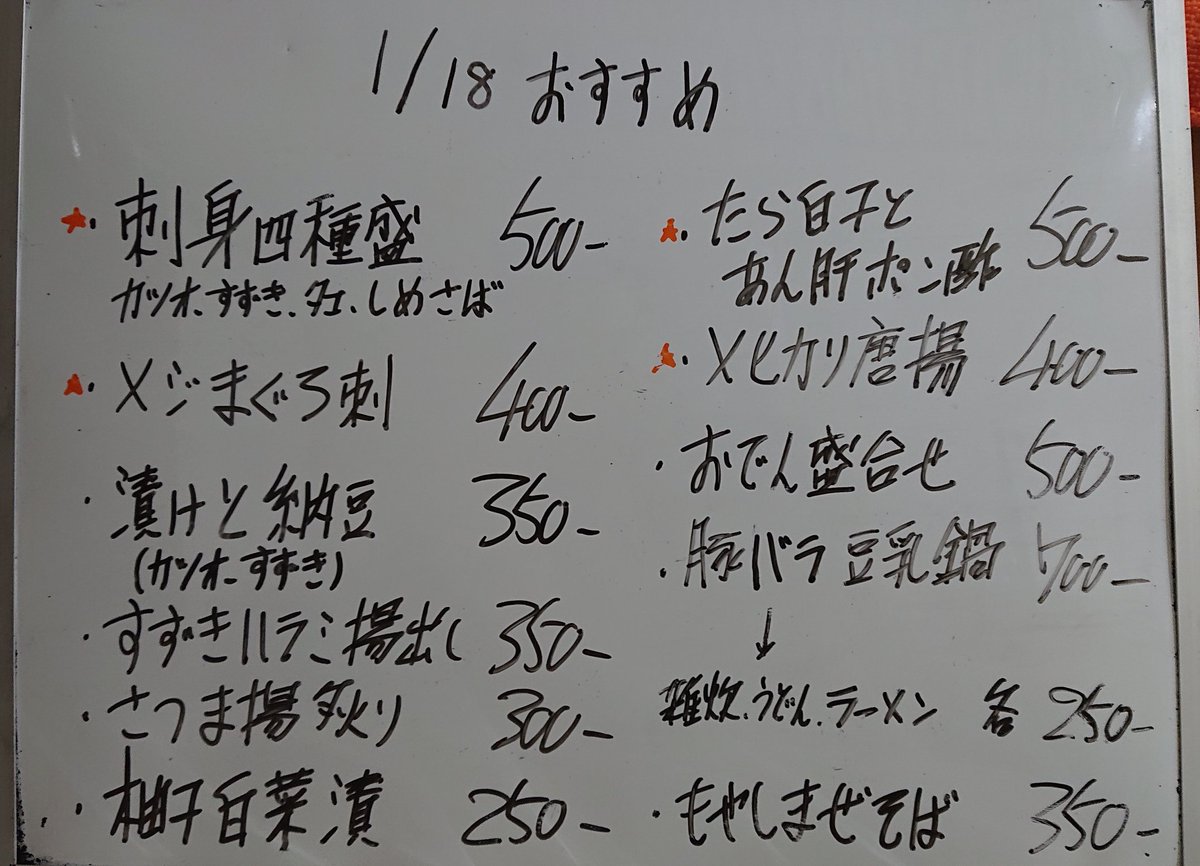 1/18 おすすめ
★・刺身四種盛 500-
カツオ、すずき、タコ、しめさば
★・メジまぐろ刺 400-
・漬けと納豆 350-
(カツオ、すずき)
・すずきハラミ揚出し 350-
・さつま揚炙り 300-
・柚子白菜漬 250-
★・たら白子と
あん肝ポン酢 500-
★・メヒカリ唐揚 400-
・おでん盛合せ 500-
・豚バラ豆乳鍋 700-
↓
雑炊、うどん、ラーメン 各250-
・もやしまぜそば 350-